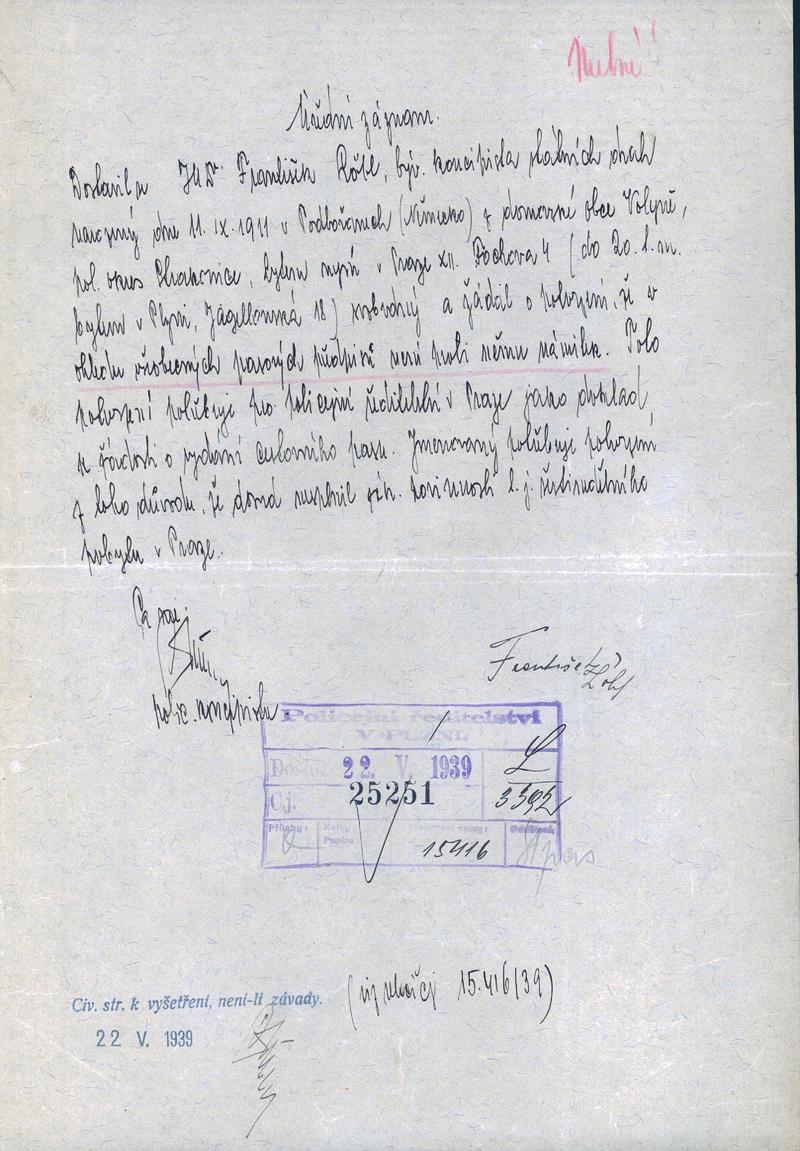 Nutné!
Úřední záznam.
Dostavil se JUDr František Röbl, býv. koncipista státních drah
narozený dne 11.IX.1911 v Podbořanech (Německo) z domovské obce Volyně,
pol. okres Chomutov, bytem nyní v Praze XII. Fochova 4 (do 20. t.m.
bytem v Plzni, Jagellonská 18) svobodný a žádal o potvrzení, že v
ohledu všeobecných pasových předpisů není proti němu námitek. Toto
potvrzení potřebuje pro policejní ředitelství v Praze jako doklad
k žádosti o vydání cestovního pasu. Jmenovaný potřebuje potvrzení
z toho důvodu, že dosud nesplnil povinnosti t.j. šestinedělního
pobytu v Praze.
František
Policejní ředitelství
V PLZNI.
Došlo: 22. V. 1939
Čj. 25251
3392
Přílohy:
15416
Civ. str. k vyšetření, není-li závady.
22 V. 1939
(15.416/39)